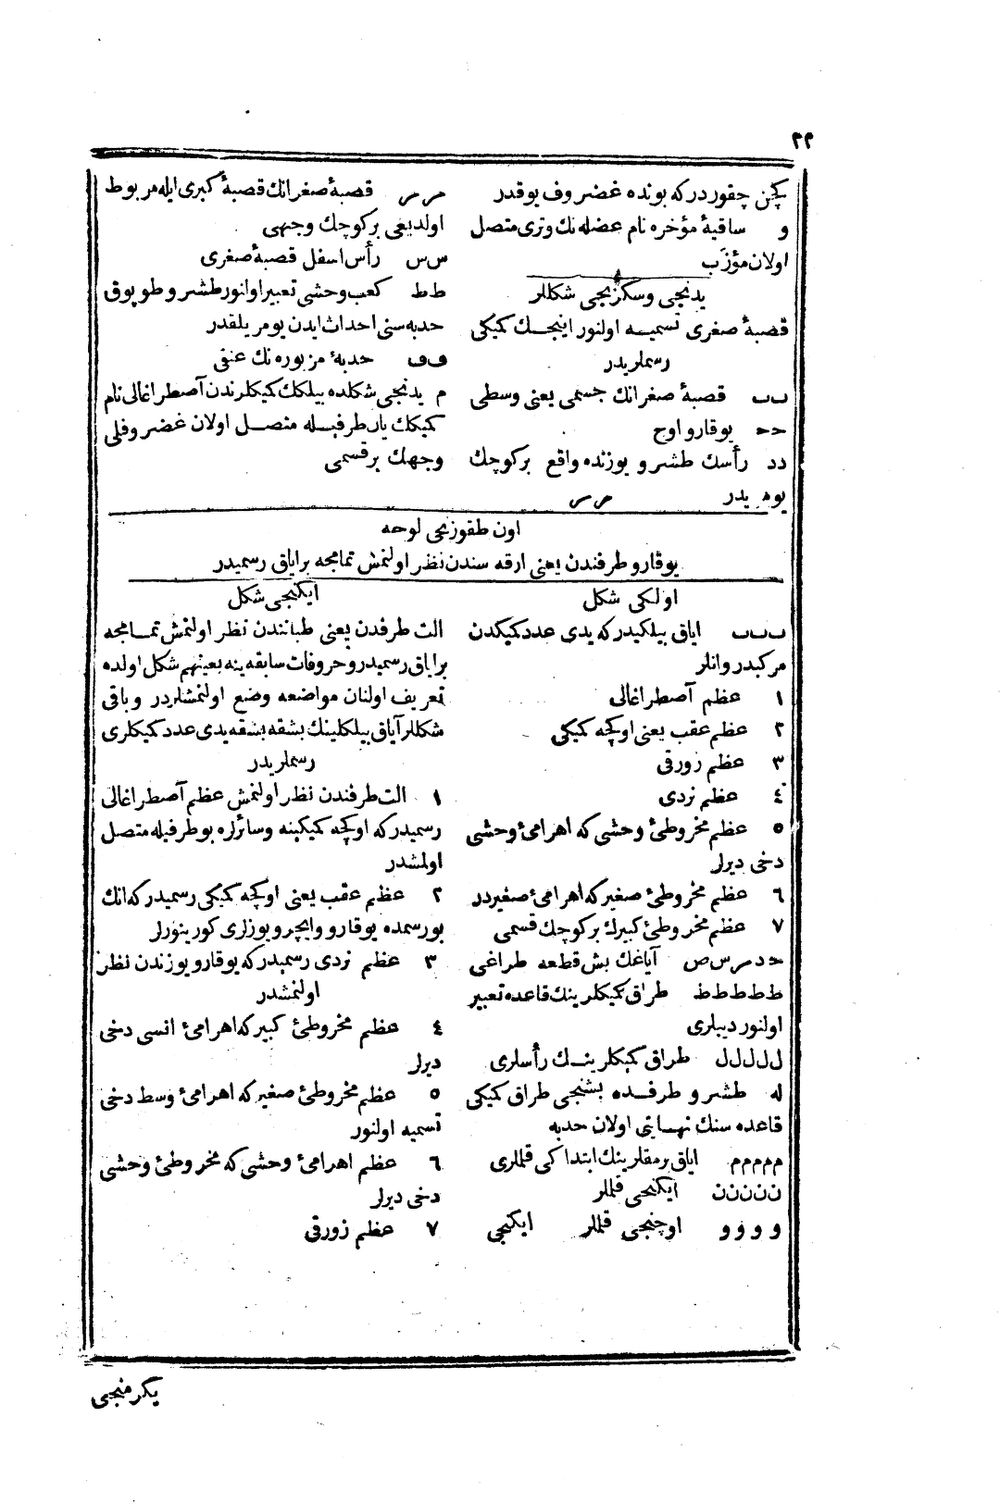 ٢٢
كچن چقوردر كه بونده غضروف يوقدر
و ساقيهٔ مؤخره نام عضله نك وترى متصل
اولان مؤزب
يدنجى وسكزنجى شكللر
قصبهٔ صغرى تسميه اولنور اينجك كميكى
رسملريدر
ب‌ب قصبهٔ صغرانك جسمى يعنى وسطى
ح‌ح يوقارو اوج
دد رأسك طشرو يوزنده واقع بركوچك
يومريدر
مر مر
مر مر قصبهٔ صغرانك قصبهٔ كبرى ايله مربوط
اولديغى بركوچك وجهى
س‌س رأس اسفل قصبهٔ صغرى
ط‌ط كعب وحشى تعبير اولنور طشرو طوپوق
حدبه سنى احداث ايدن يومريلقدر
ف‌ف حدبهٔ مزبوره نك عنقى
م يدنجى شكلده بيلكك كميكلرندن آصطراغالى نام
كميكك يان طرفيله متصل اولان غضروفلى
وجهك برقسمى
اون طقوزنجى لوحه
يوقارو طرفندن يعنى ارقه سندن نظر اولنمش تمامجه براياق رسميدر
اولكى شكل
ب‌ب‌ب اياق بيلكيدر كه يدى عدد كميكدن
مركبدر وانلر
١ عظم آصطراغالى
٢ عظم عقب يعنى اوكچه كميكى
٣ عظم زورقى
٤ عظم نردى
٥ عظم مخروطئ وحشى كه اهرامئ وحشى
دخى ديرلر
٦ عظم مخروطئ صغير كه اهرامئ صغيردر
٧ عظم مخروطئ كبيرك بركوچك قسمى
ح د مر س ص آياغك بش قطعه طراغى
ط ط ط ط ط طراق كميكلرينك قاعده تعبير
اولنور ديبلرى
ل ل ل ل ل طراق كميكلرينك رأسلرى
له طشرو طرفده بشنجى طراق كميكى
قاعده سنك نهايتى اولان حدبه
م م م م م اياق پرمقلرينك ابتداكى قلملرى
ن ن ن ن ن ايكنجى قلملر
و و و و اوچنجى قلملر ايكنجى
ايكنجى شكل
الت طرفدن يعنى طباننندن نظر اولنمش تمامجه
براياق رسميدر وحروفات سابقه ينه بعينهم شكل اولده
تعريف اولنان مواضعه وضع اولنمشلردر وباقى
شكللر آياق بيلكلينك بشقه بشقه يدى عدد كميكلرى
رسملريدر
١ الت طرفندن نظر اولنمش عظم آصطراغالى
رسميدر كه اوكچه كميكينه وسائرله بو طرفيله متصل
اولمشدر
٢ عظم عقب يعنى اوكچه كميكى رسميدر كه انك
بو رسمده يوقارو وايچرو يوزلرى كورينورلر
٣ عظم نردى رسميدر كه يوقارو يوزندن نظر
اولنمشدر
٤ عظم مخروطئ كبير كه اهرامئ انسى دخى
ديرلر
٥ عظم مخروطئ صغير كه اهرامئ وسط دخى
تسميه اولنور
٦ عظم اهرامئ وحشى كه مخروطئ وحشى
دخى ديرلر
٧ عظم زورقى
يكرمنجى